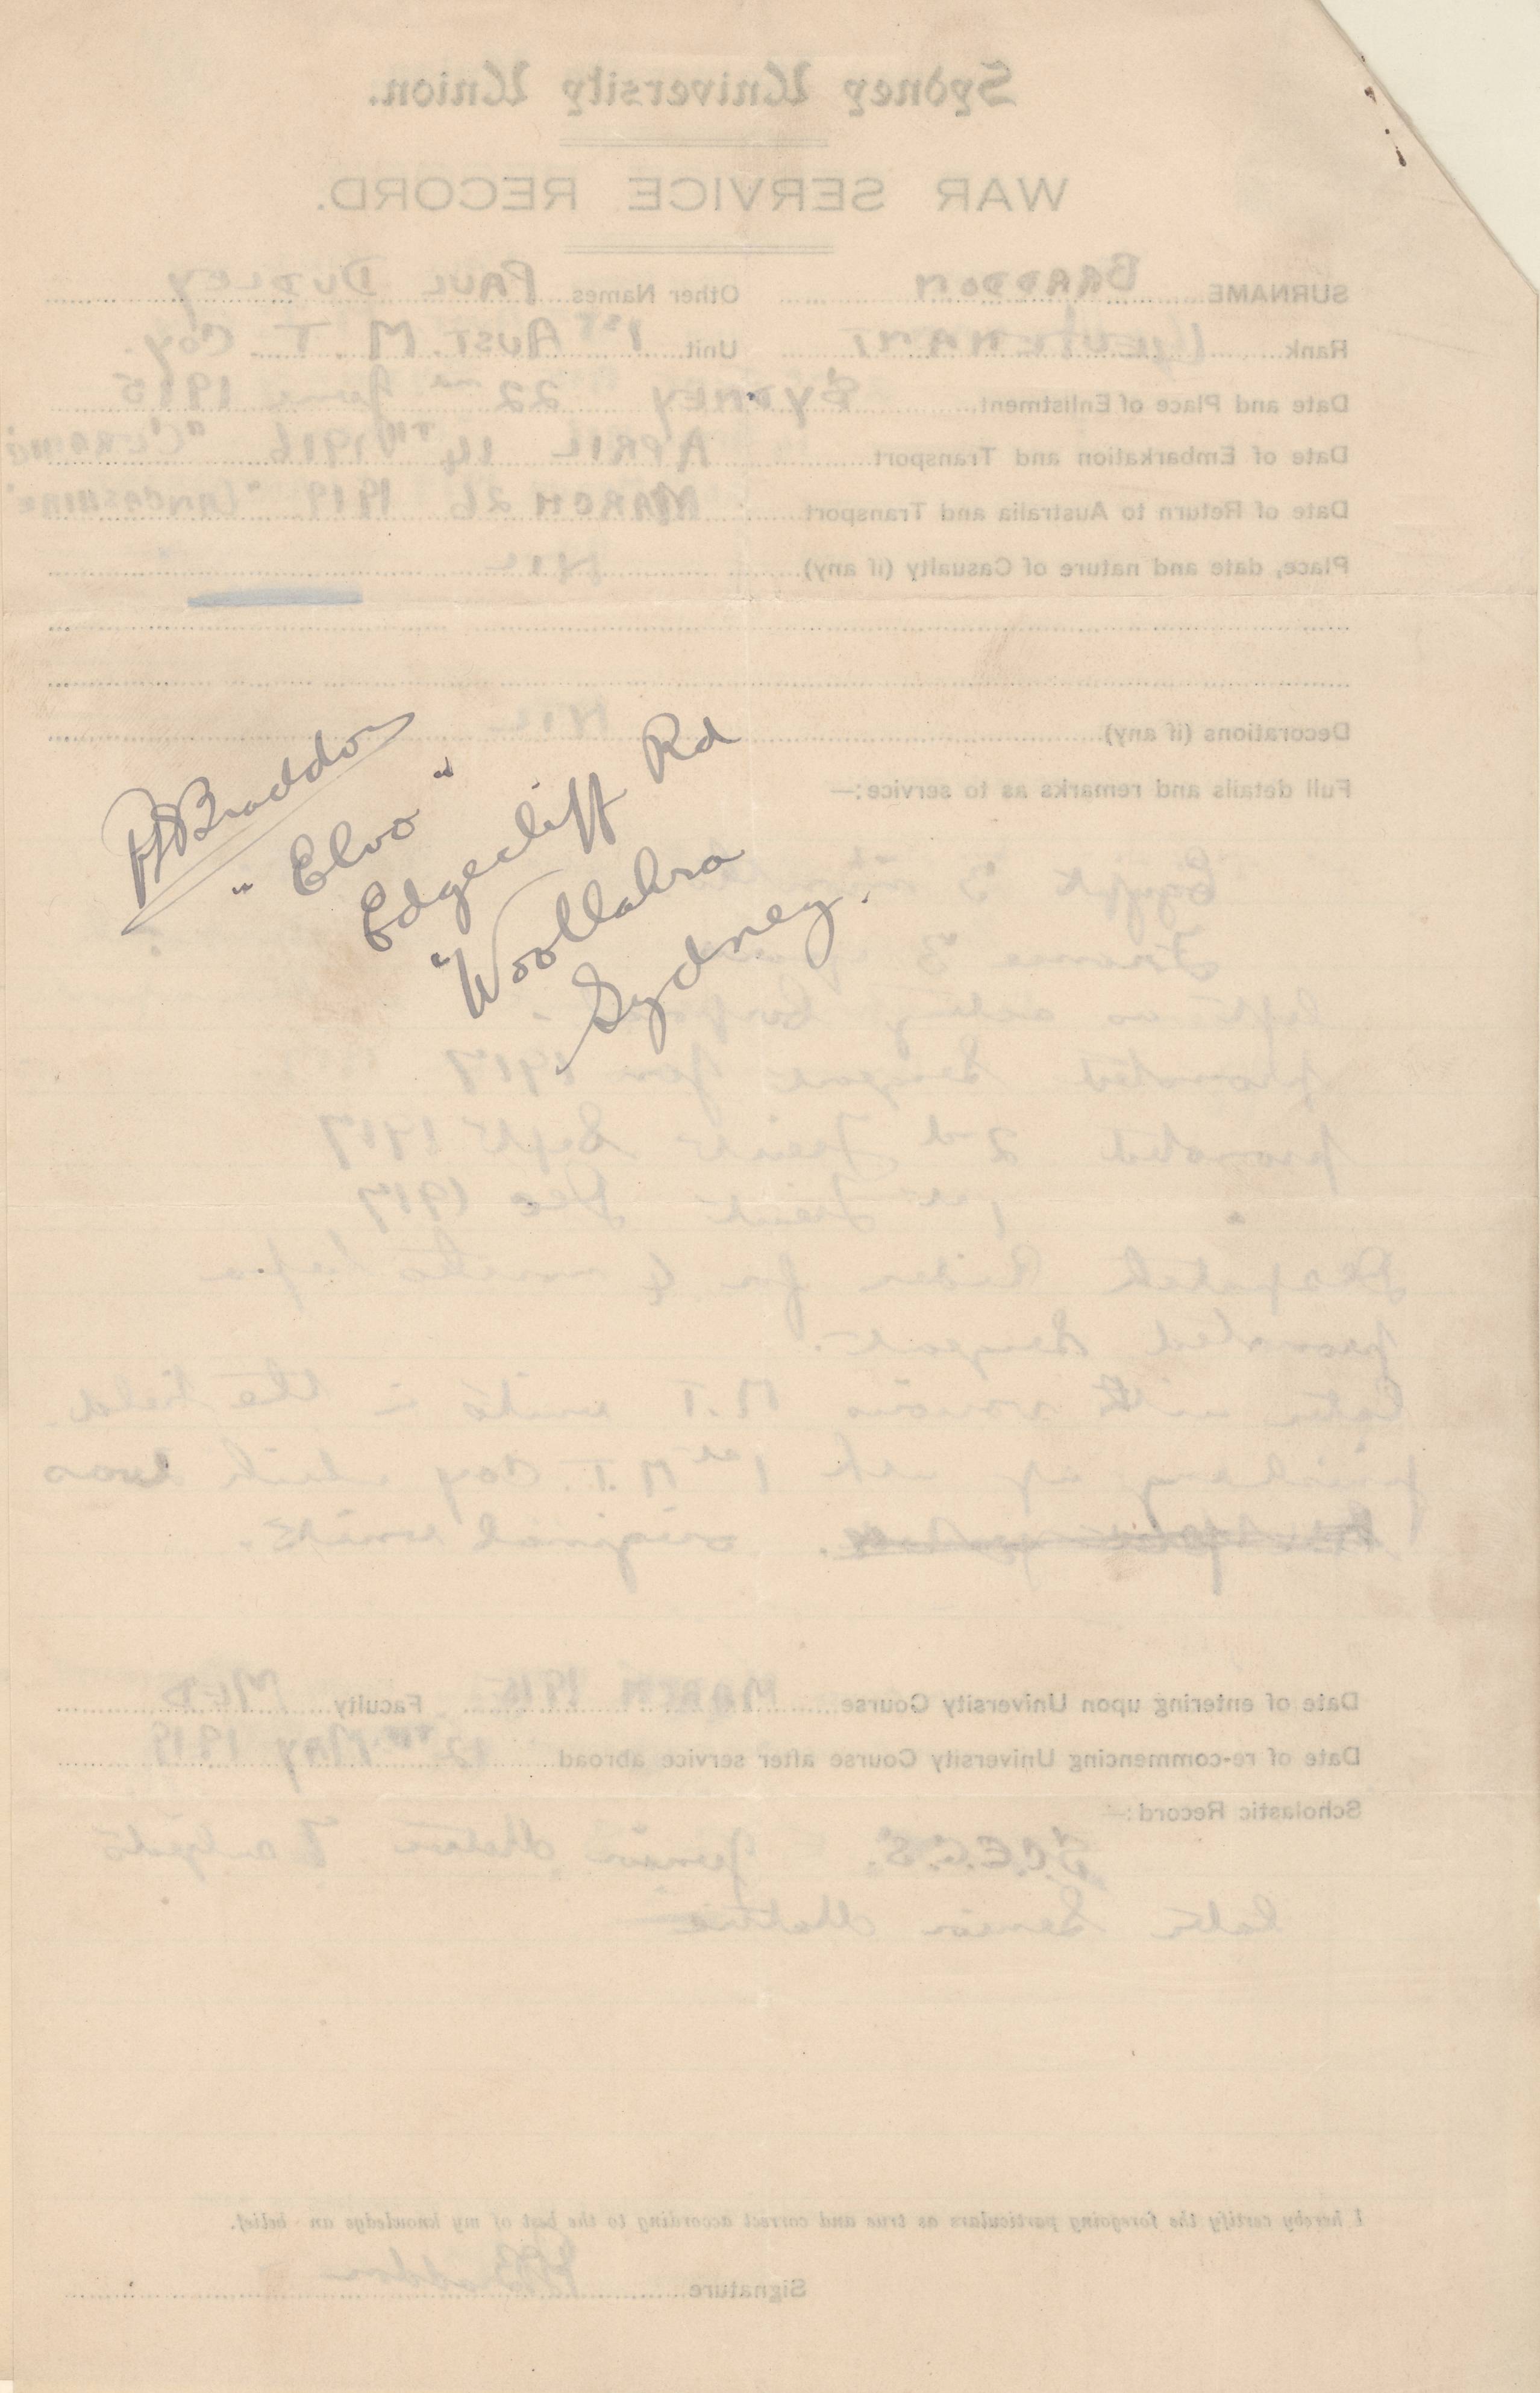 PDBraddon
"Elvo"
Edgecliff Rd
Woollahra
Sydney.
Sydney University Union.
WAR SERVICE RECORD.
SURNAME BRADDON Other Names PAUL DUDLEY
Rank LIEUTENANT Unit 1ST AUST. M. T. Coy.
Date and Place of Enlistment SYDNEY 22nd June 1915
Date of Embarkation and Transport APRIL 14TH 1916 "CERAMIC"
Date of Return to Australia and Transport MARCH 26 1919 "LANCASHIRE"
Place, date and nature of Casualty (if any) NIL
Decorations (if any) NIL
Full details and remarks as to service:—
Egypt 3
France 3
left as acting
promoted Sergeant Jan 1917
promoted 2nd Lieut Sept 1917
1st Lieut Dec 1917
Despatch Rider for 4 months before
promoted Sergeant.
Later with various M.T. units in the field.
finishing up with 1st M.T. Coy which was
original unit.
Date of entering upon University Course MARCH 1915 Faculty MED
Date of re-commencing University Course after service abroad 12TH May 1919
Scholastic Record:—
S.C.E.G.S. Junior
Later Senior Matric
I hereby certify the foregoing particulars as true and correct according to the best of my knowledge an belief.
Signature PDBraddon